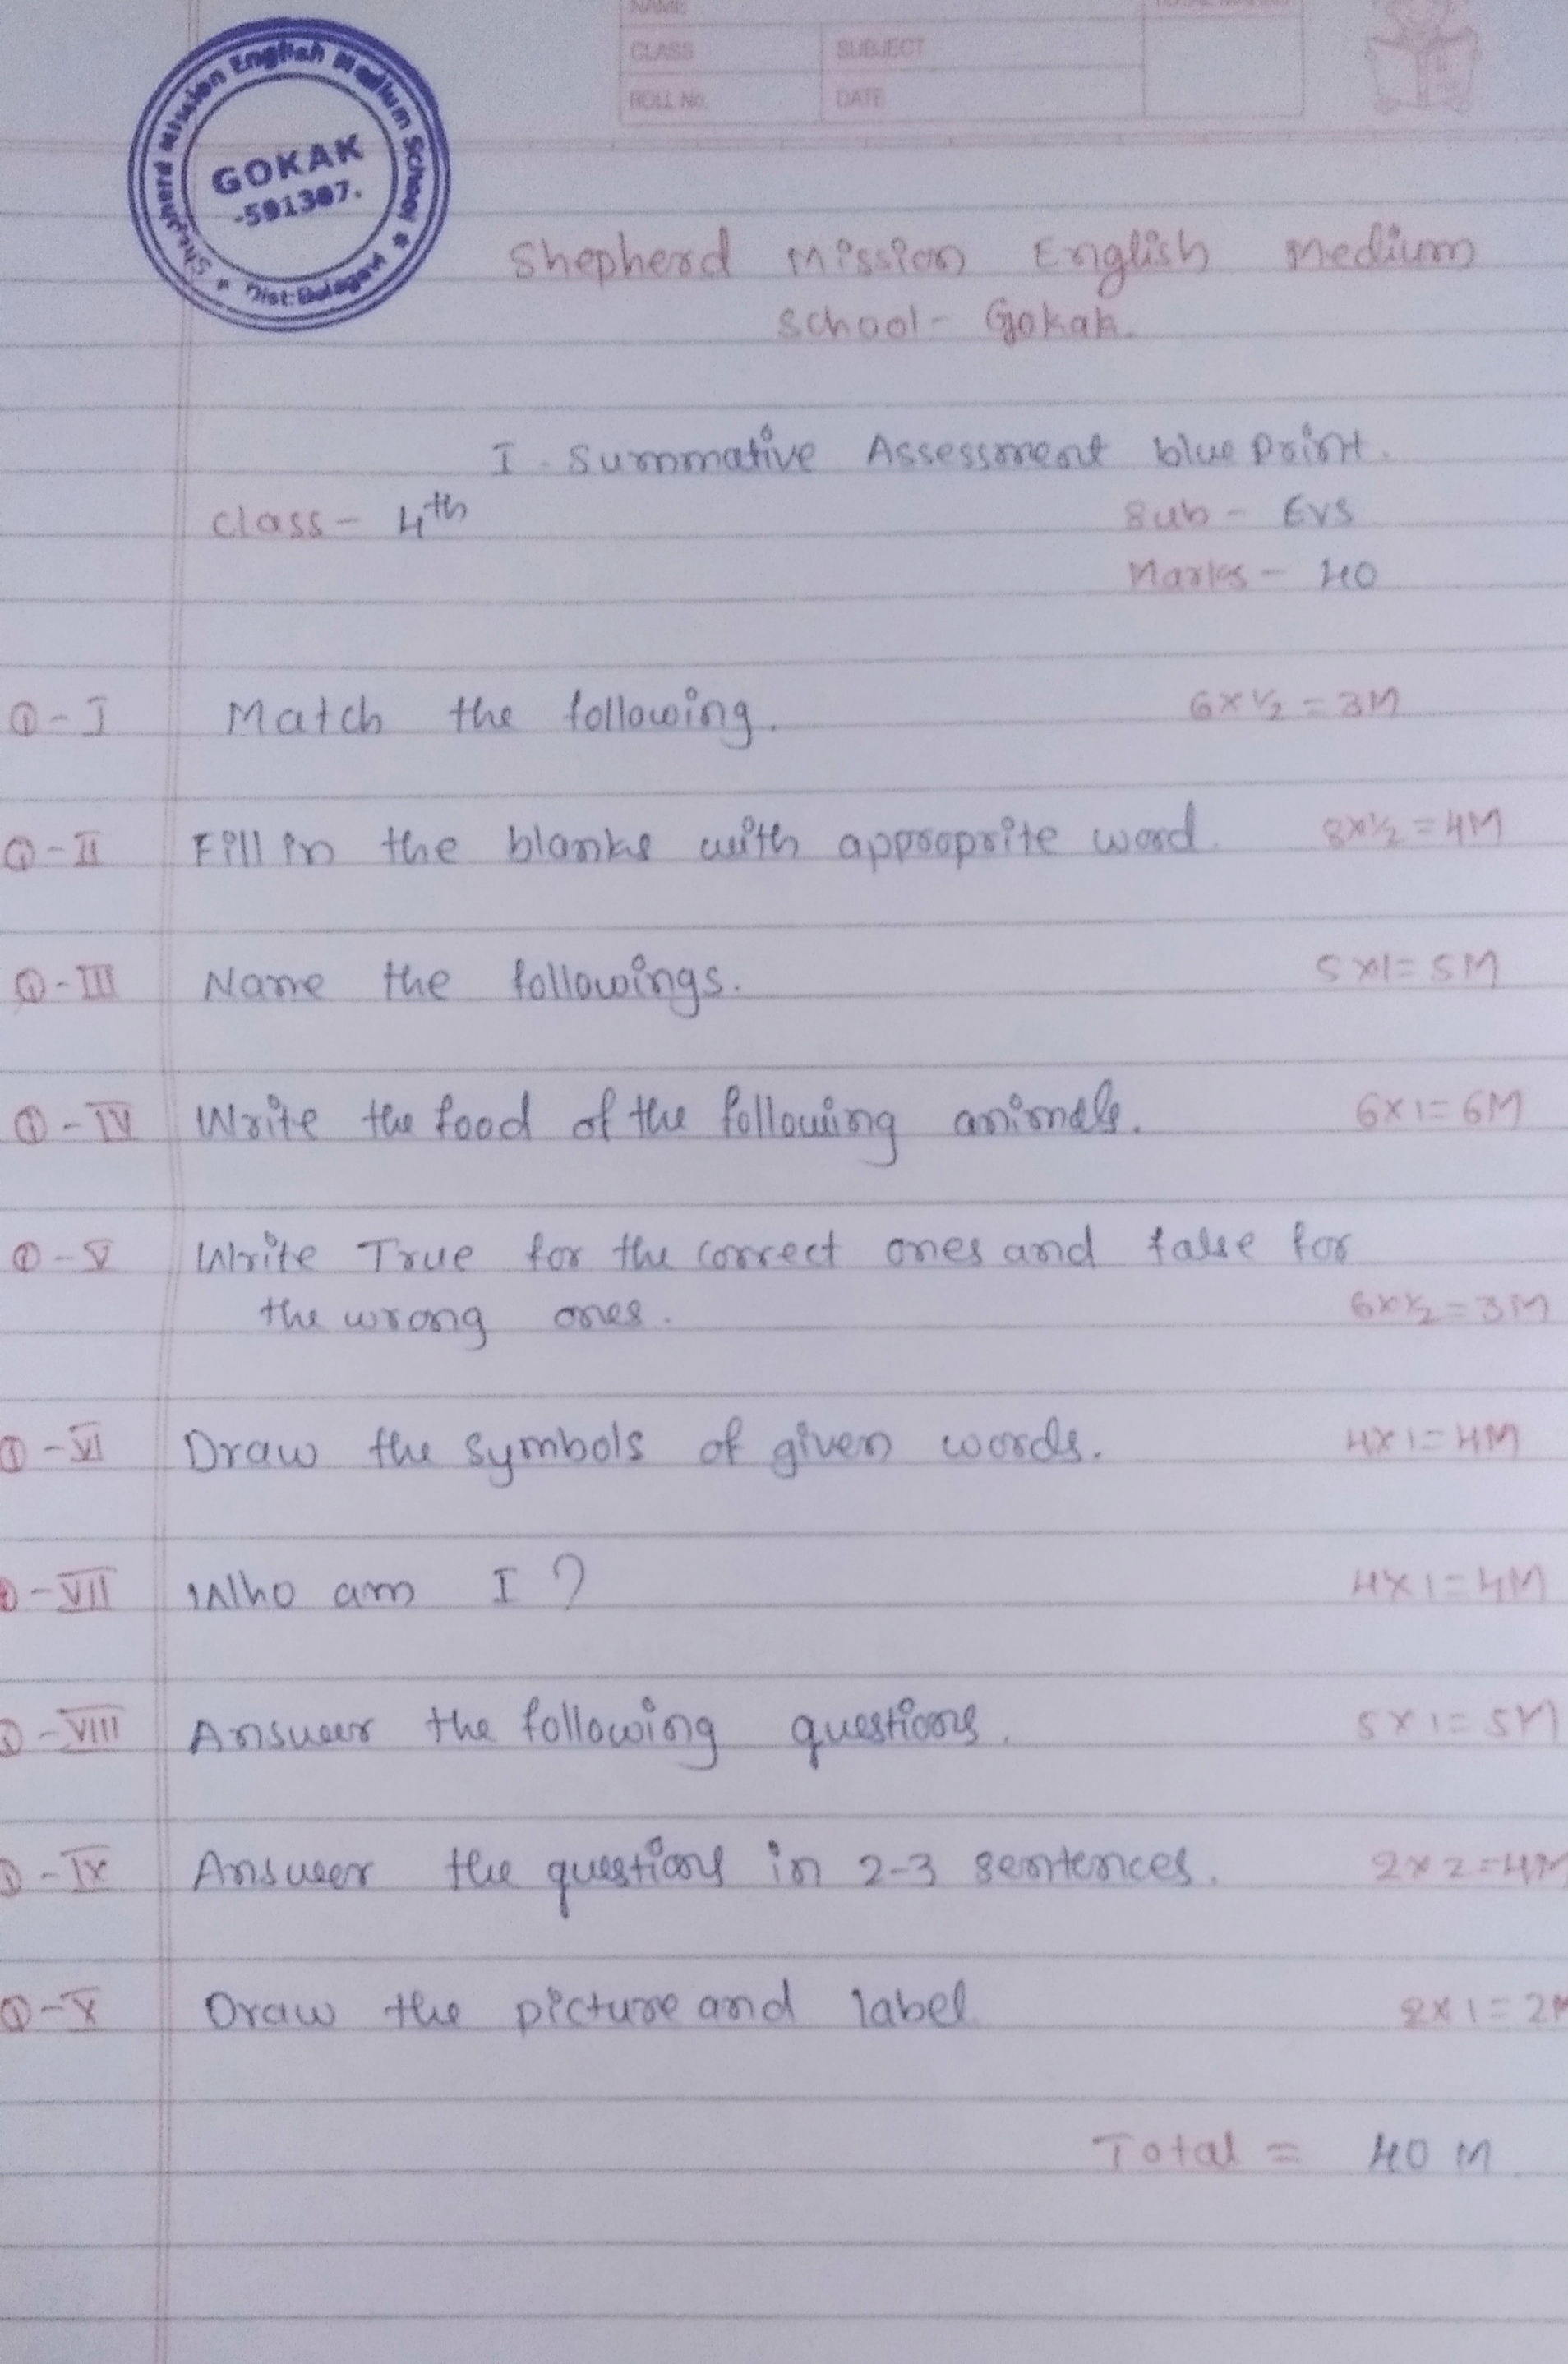 NAME
CLASS
SUBJECT
ROLL No.
DATE
Shepherd Mission English Medium School
GOKAK
-591307.
Dist:Belagavi
Shepherd Mission English Medium
School- Gokak.
I - Summative Assessment blue Print.
Class- 4th
Sub - EVS
Marks - 40
Q-I Match the following. 6x½=3M
Q-II Fill in the blanks with approprite word. 8x½=4M
Q-III Name the followings. 5x1=5M
Q-IV Write the food of the following animals. 6x1=6M
Q-V Write True for the correct ones and false for
the wrong ones. 6x½=3M
Q-VI Draw the symbols of given words. 4x1=4M
Q-VII Who am I ? 4x1=4M
Q-VIII Answer the following questions. 5x1=5M
Q-IX Answer the questions in 2-3 sentences. 2x2=4M
Q-X Draw the picture and label 2x1=2M
Total = 40 M